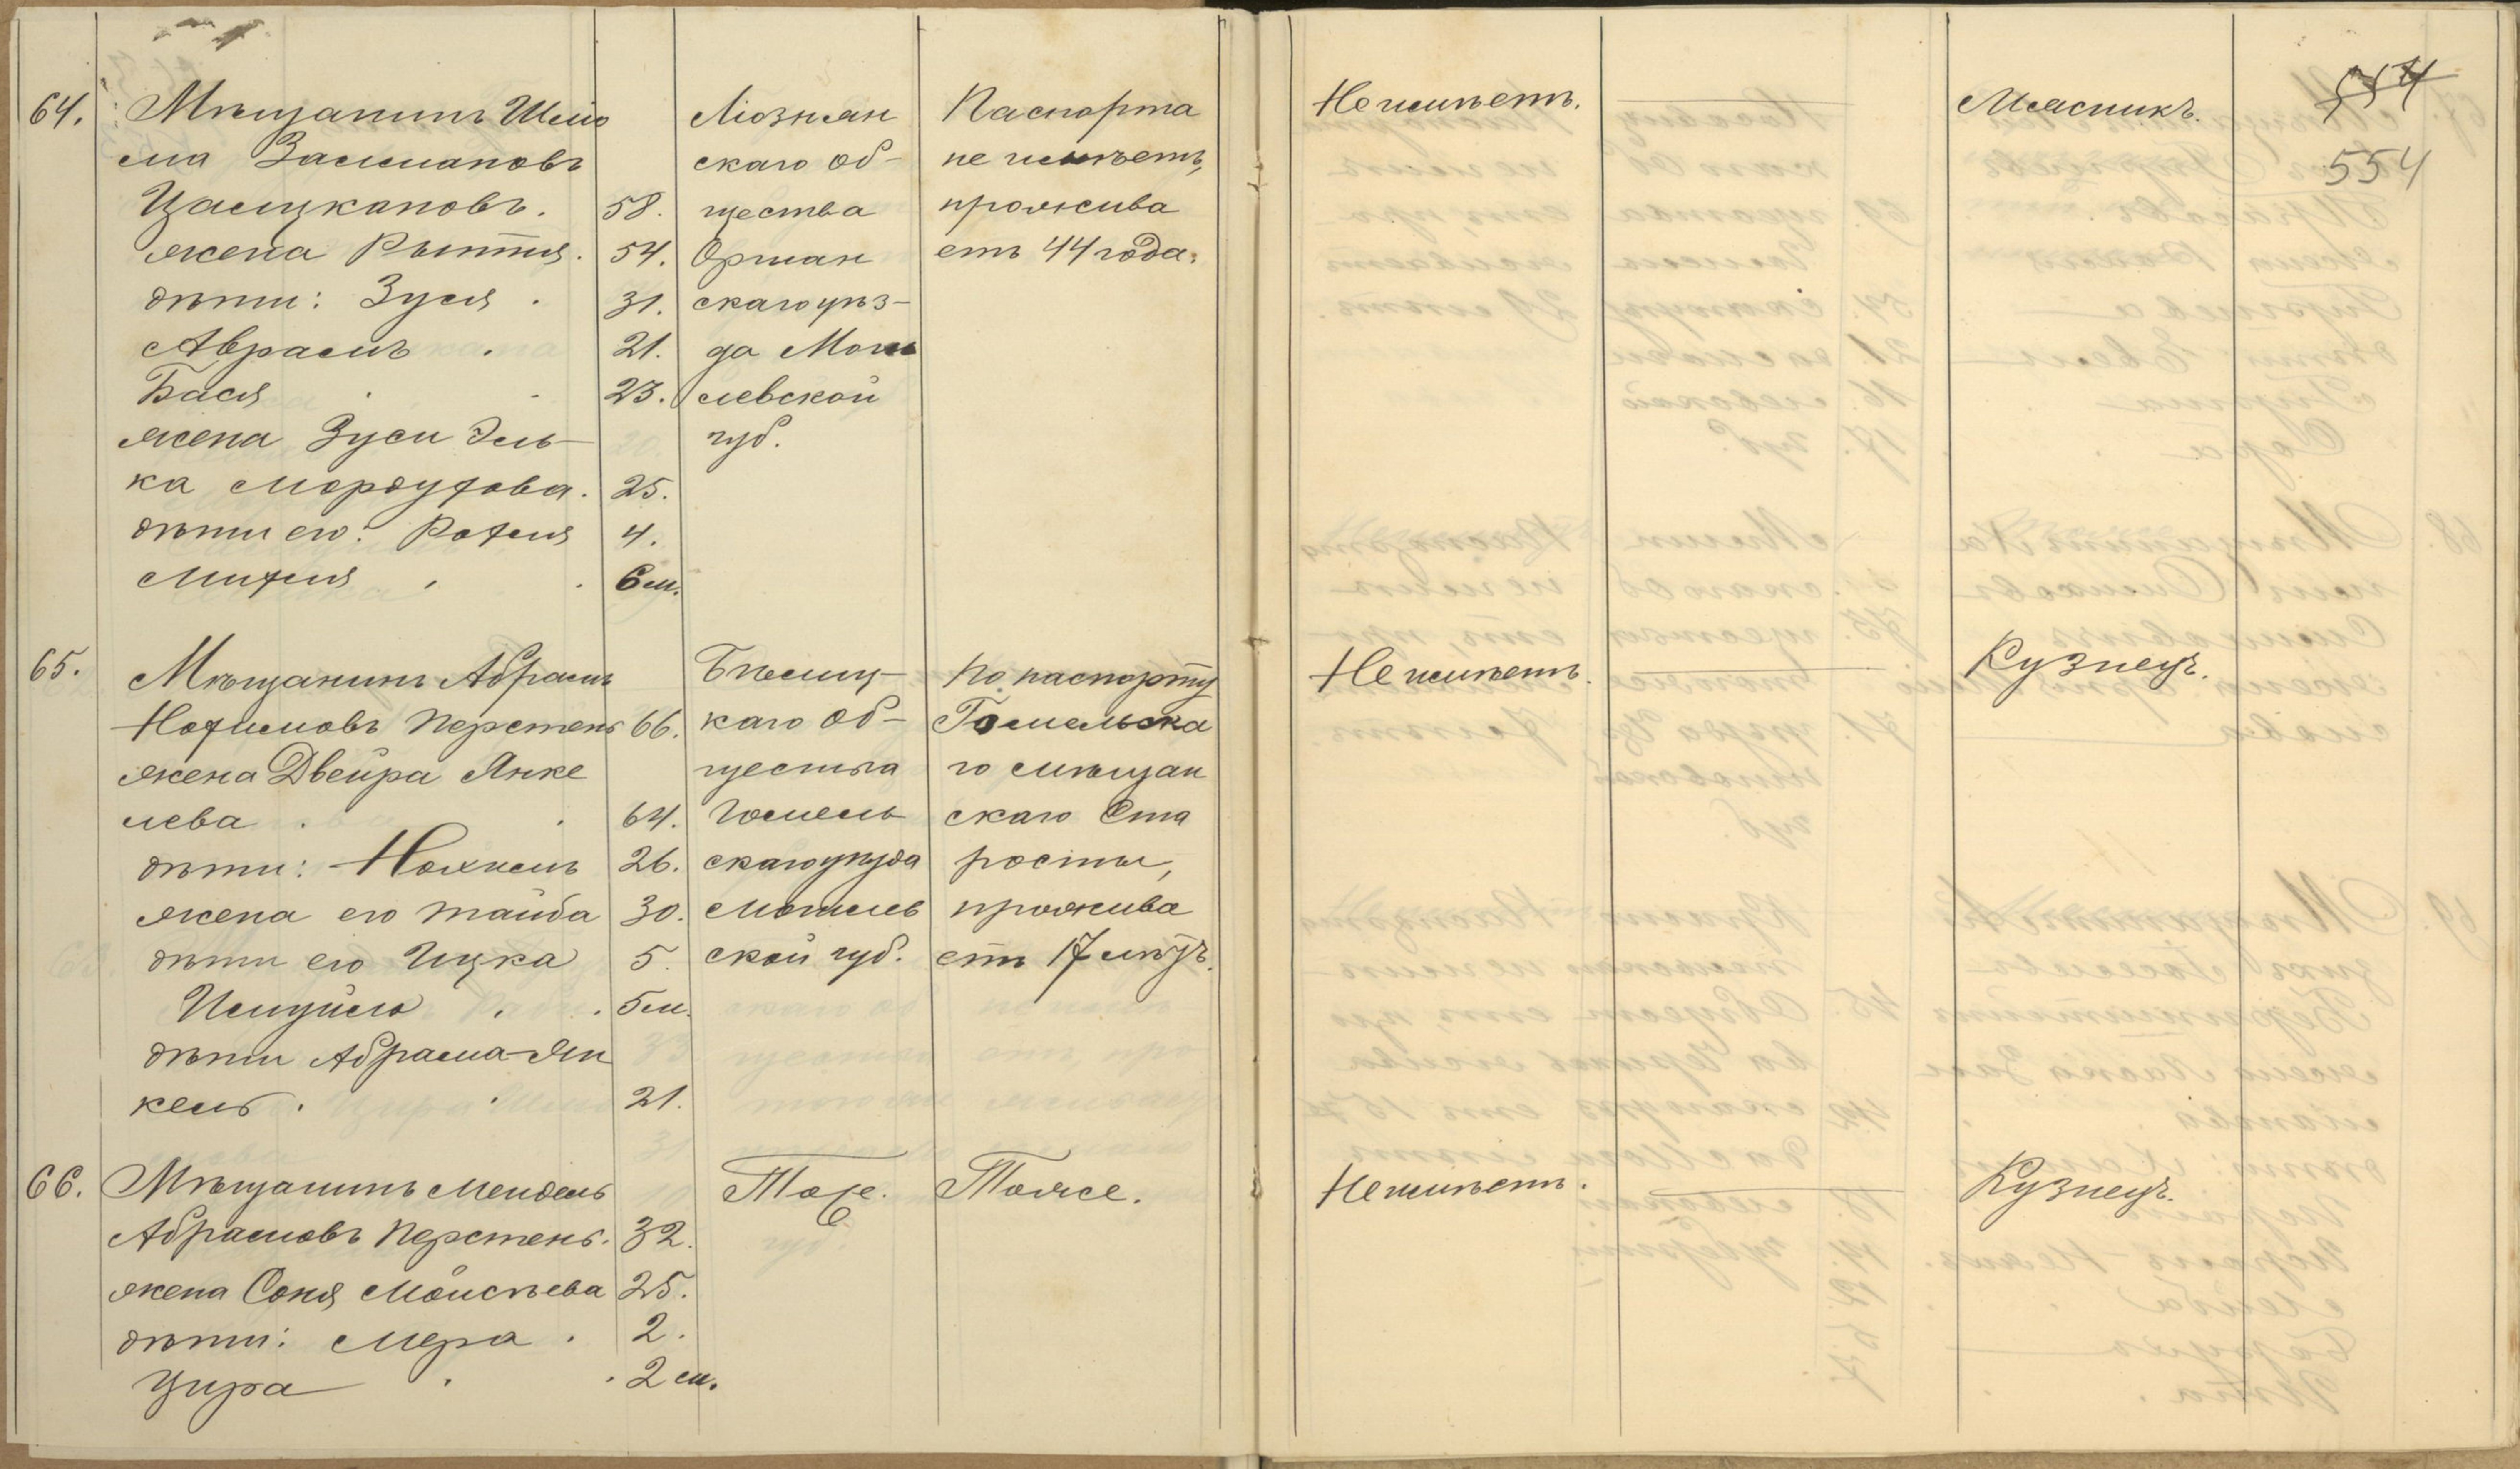 554
554
64. Мѣщанинъ Шлио
ма Залмановъ
Цалцкановъ. 58.
жена Рытля. 54.
дѣти: Зуся . 31.
Абрамъ . 21.
Бася . 23.
жена Зуси Эль-
ка Мордухова. 25.
дѣти его: Рохля 4.
Михля . 6 м.
Лiознян
скаго об-
щества
Оршан
скаго уѣз-
да Моги
левской
губ.
Паспорта
не имѣетъ,
прожива
етъ 44 года.
Не имѣетъ.
Мясникъ.
65. Мѣщанинъ Абрамъ
Нохимовъ Перстень 66.
жена Двейра Янке
лева . 64.
дѣти: Нохимъ 26.
жена его Тайба 30.
дѣти его Ицка 5.
Шмуйло . 5 м.
дѣти Абрама-Ян
кель . 21.
Бѣлиц-
каго об-
щества
Гомель
скаго уѣзда
Могилев
ской губ.
По паспорту
Гомельска
го мѣщан
скаго Ста
росты,
прожива
етъ 17 лѣтъ.
Не имѣетъ.
Кузнецъ.
66. Мѣщанинъ Мендель
Абрамовъ Перстень. 32.
жена Соня Моисѣева 25.
дѣти: Мера . 2.
Цира . 2 м.
Тоже.
Тоже.
Не имѣетъ.
Кузнецъ.